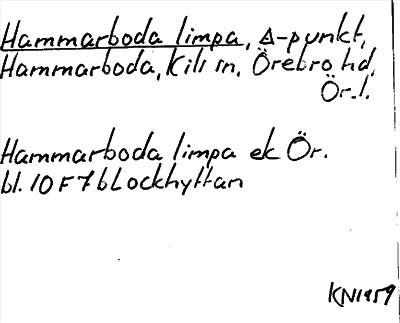 Hammarboda limpa, ∆-punkt,
Hammarboda, Kils sn, Örebro hd,
Ör.l.
Hammarboda limpa ek Ör.
bl. 10 F 7 b Lockhyttan
KN 1959